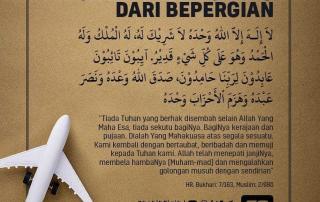 DARI BEPERGIAN
لَا إِلَـهَ إِلاَّ اللَّهُ وَحْدَهُ لاَ شَرِيْكَ لَهُ، لَهُ الْمُلْكُ وَلَهُ
الْحَمْدُ وَهُوَ عَلَى كُلِّ شَيْءٍ قَدِيْرٌ. آيِبُوْنَ تَائِبُوْنَ
عَابِدُوْنَ لِرَبِّنَا حَامِدُوْنَ، صَدَقَ اللَّهُ وَعْدَهُ وَنَصَرَ
عَبْدَهُ وَهَزَمَ الْأَحْزَابَ وَحْدَهُ
"Tiada Tuhan yang berhak disembah selain Allah Yang
Maha Esa, tiada sekutu bagiNya. BagiNya kerajaan dan
pujaan. Dialah Yang Mahakuasa atas segala sesuatu.
Kami kembali dengan bertaubat, beribadah dan memuji
kepada Tuhan kami. Allah telah menepati janjiNya,
membela hambaNya (Muham-mad) dan mengalahkan
golongan musuh dengan sendirian"
HR. Bukhari: 7/163, Muslim: 2/980